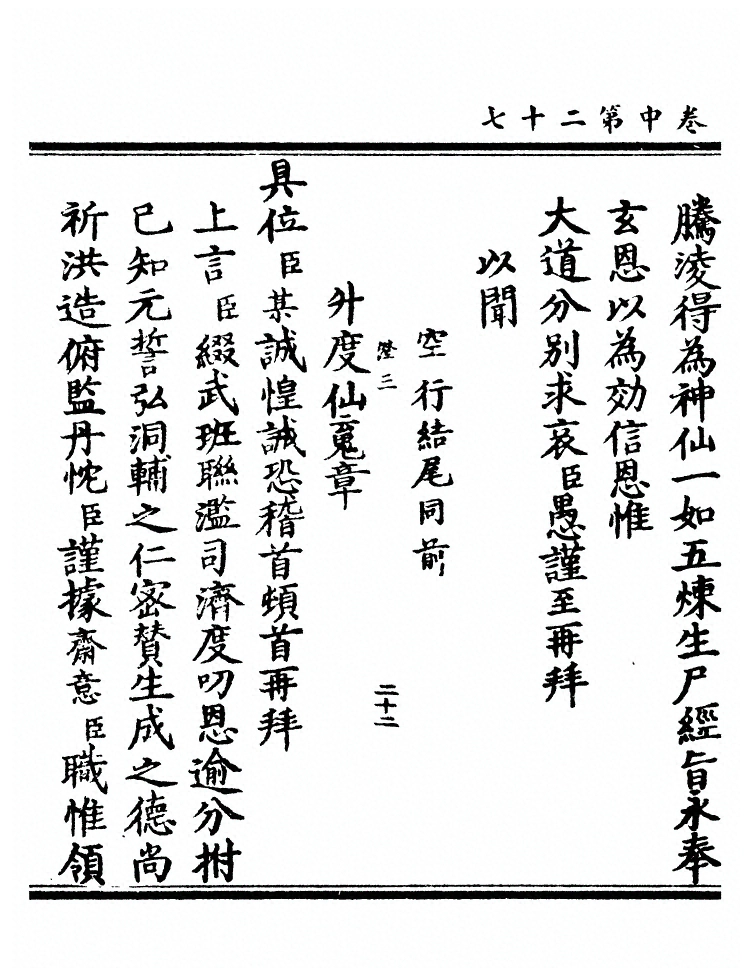 卷中第二十七
騰淩得為神仙一如五煉生尸經旨永奉
玄恩以為効信恩惟
大道分別求哀臣愚謹至再拜
以聞
空行結尾同前
三　二十二
升度仙䰟章
具位臣某誠惶誠恐稽首頓首再拜
上言臣綴武班聯濫司濟度叨恩逾分拊
己知元誓弘洞輔之仁密贊生成之德尚
祈洪造俯監丹忱臣謹據齋意臣職惟領